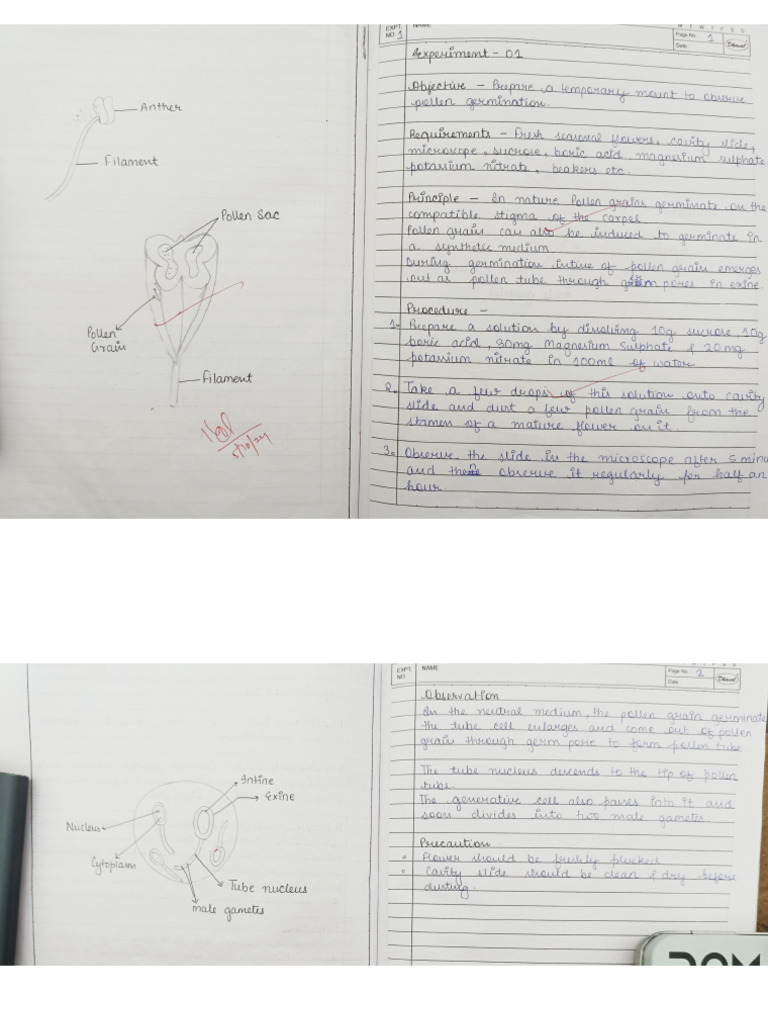 Anther
Filament
Pollen Sac
Pollen
Grain
Filament
5/10/24
EXPT.
NO. 1
NAME
Page No. 1
Date:
Experiment - 01
Objective - Prepare a temporary mount to observe
pollen germination.
Requirements - Fresh seasonal flowers, cavity slide,
microscope, sucrose, boric acid, magnesium sulphate
potassium nitrate, beakers etc.
Principle - In nature Pollen grains germinate on the
compatible stigma of the carpel.
Pollen grain can also be induced to germinate in
a synthetic medium
During germination intine of pollen grain emerges
out as pollen tube through germ pores in exine.
Procedure -
1. Prepare a solution by disolving 10g sucrose, 10g
boric acid, 30mg Magnesium Sulphate & 20mg
potassium nitrate in 100ml of water
2. Take a few drops of this solution onto cavity
slide and dust a few pollen grain from the
stamen of a mature flower on it.
3. Observe the slide in the microscope after 5 minu
and then observe it regularly for half an
hour.
EXPT.
NO.
NAME
Page No. 2
Date:
Observation
In the neutral medium, the pollen grain germinate
the tube cell enlarges and come out of pollen
grain through germ pore to form pollen tube
The tube nucleus descends to the tip of pollen
tube.
The generative cell also passes into it and
soon divides into two male gametes
Precaution
Flower should be freshly plucked
Cavity slide should be clean & dry before
dusting.
Intine
Exine
Nucleus
Cytoplasm
Tube nucleus
male gametes